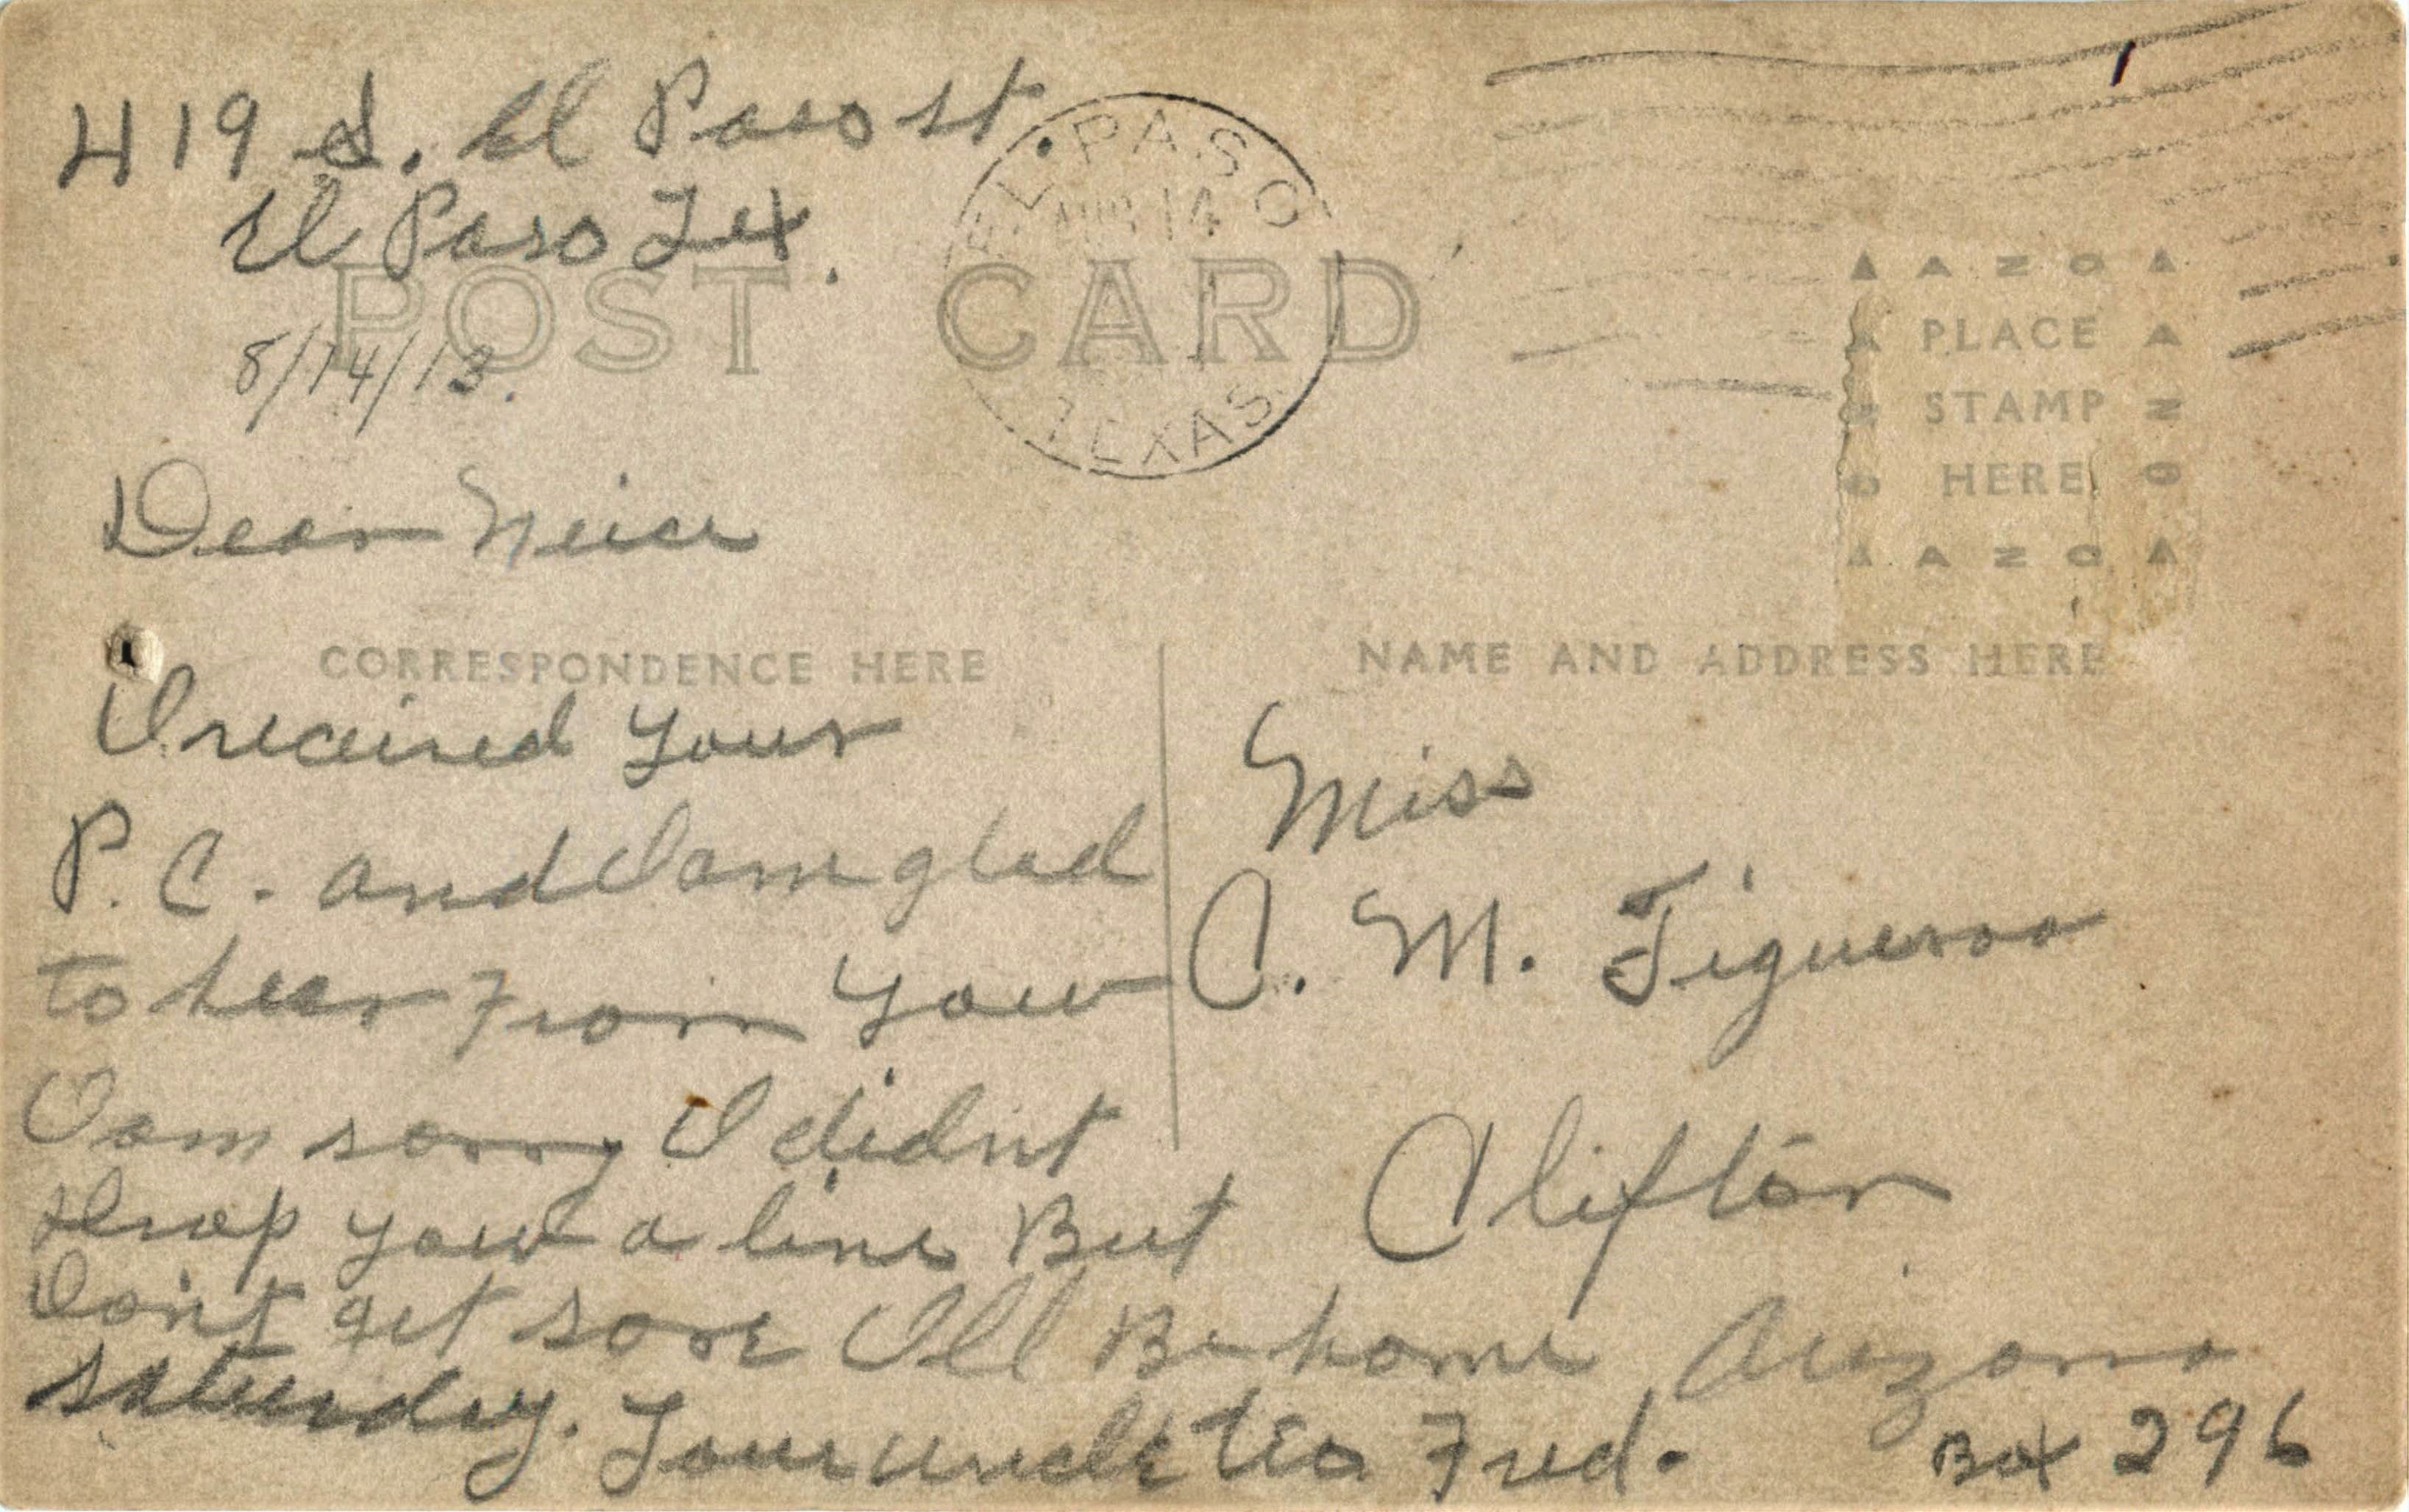 419 S. El Paso st
El Paso Tex.
8/14/13.
EL. PASO
AUG 14
TEXAS.
POST CARD
AZO
PLACE
STAMP
HERE
Dear Neice
CORRESPONDENCE HERE
I received your
P. C. and I am glad
to hear From you
I am sorry I didn't
drop you a line But
Don't get sore I'll Be home
saturday. Your uncle tio Fred.
NAME AND ADDRESS HERE
Miss
C. M. Figueroa
Clifton
Arizona
Box 296